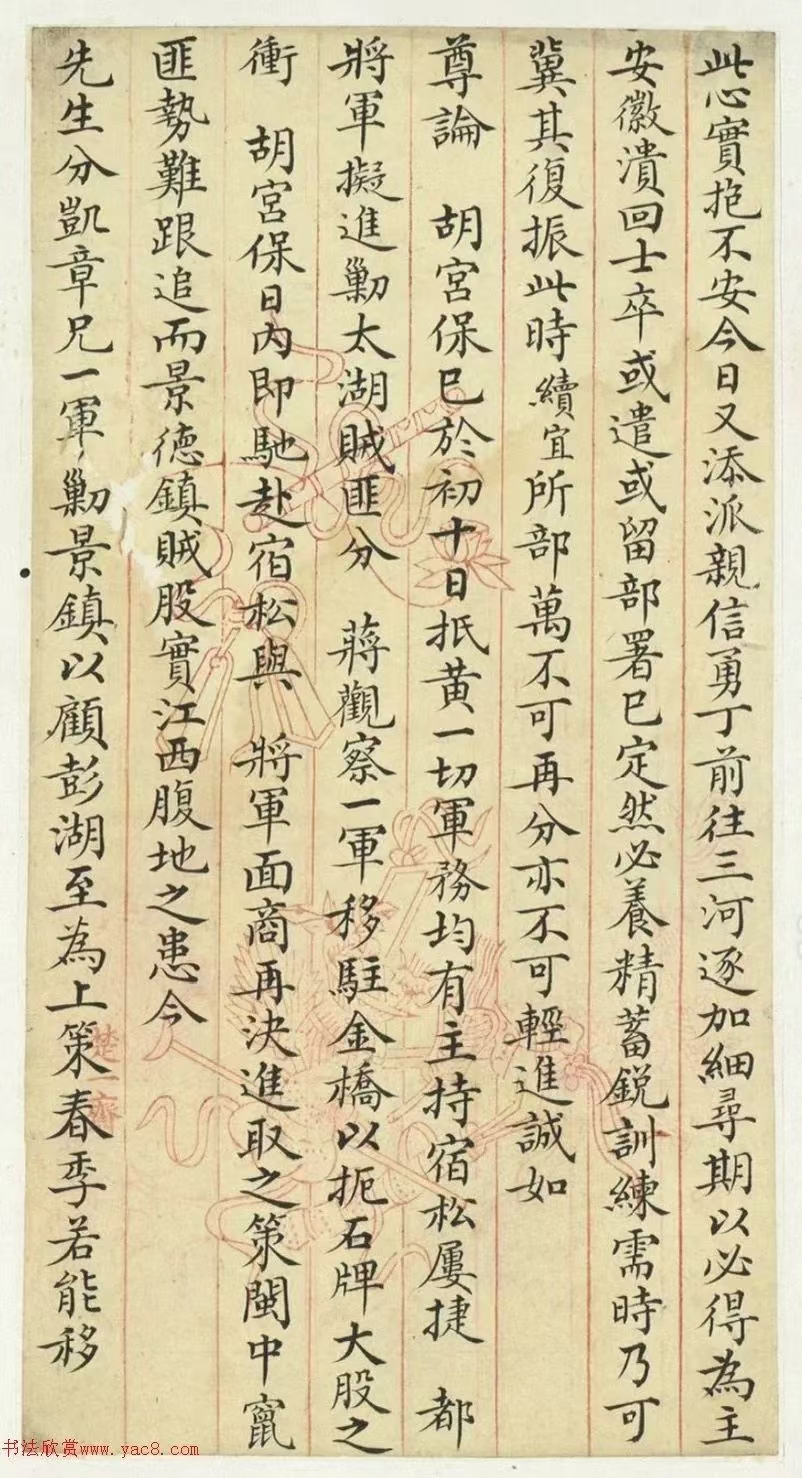 此心實抱不安今日又添派親信勇丁前往三河逐加細尋期以必得為主
安徽潰回士卒或遣或留部署已定然必養精蓄銳訓練需時乃可
冀其復振此時續宜所部萬不可再分亦不可輕進誠如
尊論　胡宮保已於初十日抵黃一切軍務均有主持宿松屢捷　都
將軍擬進勦太湖賊匪分　蔣觀察一軍移駐金橋以扼石牌大股之
衝　胡宮保日內即馳赴宿松與　將軍面商再決進取之策閩中竄
匪勢難跟追而景德鎮賊股實江西腹地之患今
先生分凱章兄一軍勦景鎮以顧彭湖至為上策春季若能移
書法欣赏www.yac8.com